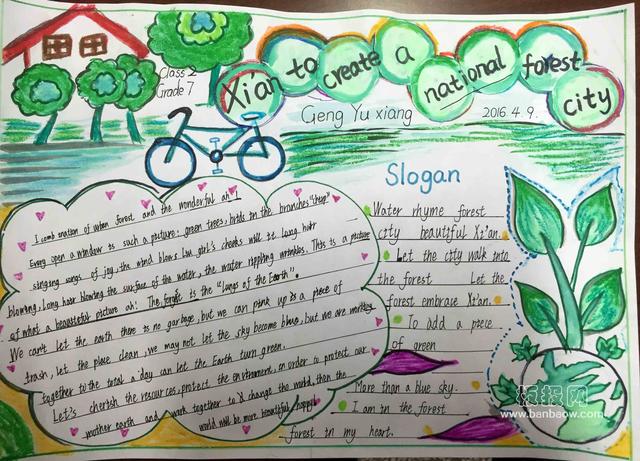 Xi'an to create a national forest city
Class 2
Grade 7
Geng Yu xiang
2016.4.9.
Slogan
Water rhyme forest
city beautiful Xi'an.
Let the city walk into
the forest Let the
forest embrace Xi'an.
To add a piece
of green
More than a blue sky.
I am in the forest
forest in my heart.
I comb nation of urban forest and the wonderful ah!
Every open a window is such a picture: green trees, birds in the branches "chirp"
singing songs of joy, the wind blows lin girl's cheeks will it long hair
blowing, long hair blowing the surface of the water, the water rippling wrinkles. This is a picture
of what a beautiful picture ah! The forest is the "lungs of the Earth".
We can't let the earth there is no garbage, but we can pink up is a piece of
trash, let the place clean, we may not let the sky become blue, but we are working
together to the total a day can let the Earth turn green.
Let's cherish the resources, protect the environment, in order to protect our
mother earth and work together to change the world, then the
world will be more beautiful, happy!
板报网
www.banbaow.com